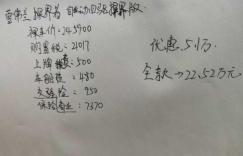 雷凌 探界者 自动四驱探界版
裸车价:245900
购置税:21017
上牌费:500
车船税:480
交强险:950
保险商业:7370
优惠5.1万
全款→22.52万元